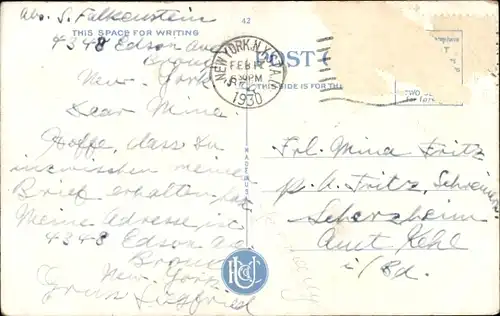 Abs. S. Falkenstein
42
THIS SPACE FOR WRITING
4348 Edson Av.
Bronx
New York
POST C
THIS SIDE IS FOR THE
NEW YORK, N.Y.
FEB 12
6 PM
1930
Dear Mina.
Hoffe, dass Du
inzwischen meine
Brief erhalten hast
Meine Adresse ist
4348 Edson Av.
Bronx
New York
Gruss Siegfried
MADE IN U.S.A.
Frl. Mina Fritz
p. A. Fritz, Schreiner
Scherzheim
Amt Kehl
i/Bd.